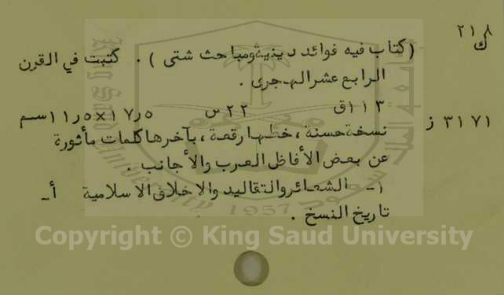 ٢١٨
ك
(كتاب فيه فوائد دينية ومباحث شتى) . كتبت في القرن
الرابع عشر الهجرى .
١١٣ ق ٢٢ س ١٧٫٥×١١٫٥ سم
٣١٧١ ز نسخة حسنة ، خطها رقعة ، بآخرها كلمات مأثورة
عن بعض الأفاظل العرب والأجانب .
١- الشعائر والتقاليد والاخلاق الاسلامية أ-
تاريخ النسخ .
1957
Copyright © King Saud University